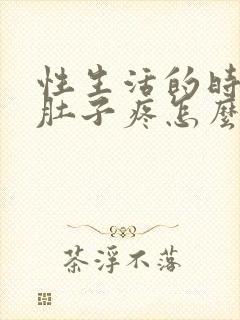 性生活的時
肚子疼怎麼
茶浮不落